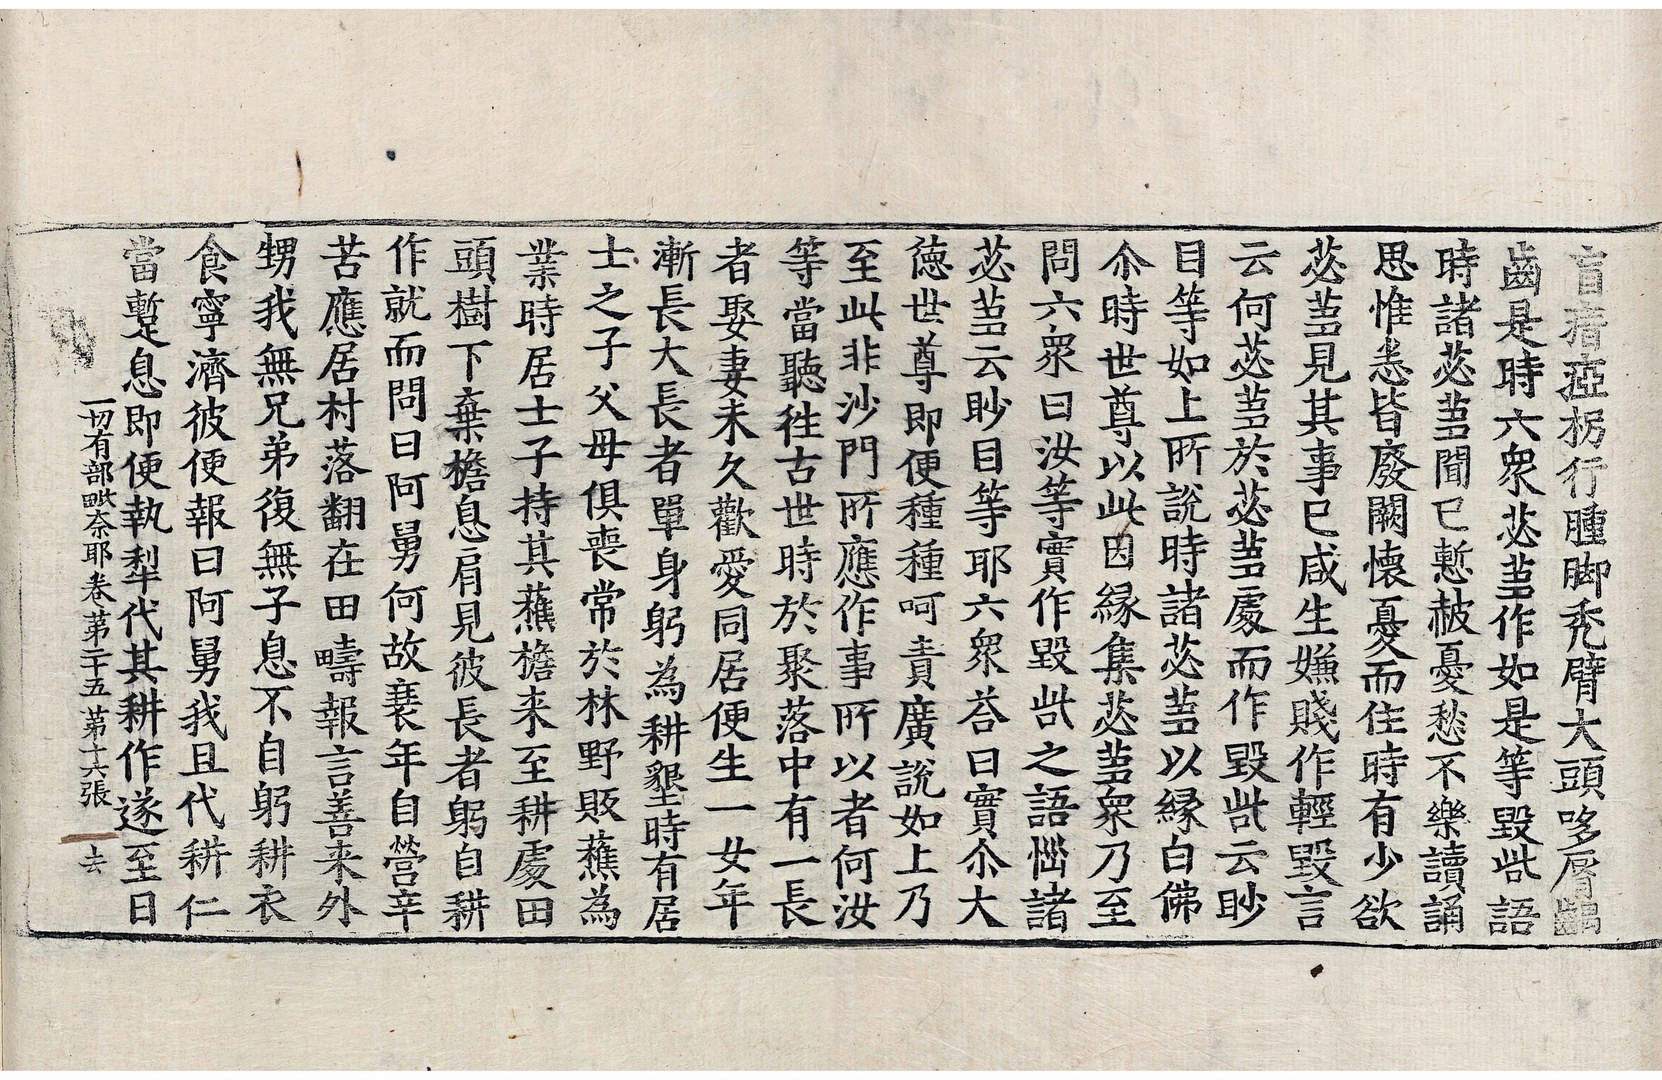 盲瘖瘂柺行腫脚禿臂大頭哆脣齵
齒是時六衆苾蒭作如是等毀呰語
時諸苾蒭聞已慙赧憂愁不樂讀誦
思惟悉皆廢闕懷憂而住時有少欲
苾蒭見其事已咸生嫌賤作輕毀言
云何苾蒭於苾蒭處而作毀呰云眇
目等如上所說時諸苾蒭以縁白佛
尒時世尊以此因縁集苾蒭衆乃至
問六衆曰汝等實作毀呰之語惱諸
苾蒭云眇目等耶六衆荅曰實尒大
徳世尊即便種種呵責廣說如上乃
至此非沙門所應作事所以者何汝
等當聽徃古世時於聚落中有一長
者娶妻未久歡愛同居便生一女年
漸長大長者單身躬為耕墾時有居
士之子父母俱喪常於林野販蕉為
業時居士子持其蕉檐来至耕處田
頭樹下棄檐息肩見彼長者躬自耕
作就而問曰阿舅何故衰年自營辛
苦應居村落翻在田疇報言善来外
甥我無兄弟復無子息不自躬耕衣
食寧濟彼便報曰阿舅我且代耕仁
當蹔息即便執犁代其耕作遂至日
一切有部毗奈耶卷第二十五 第十六張 去